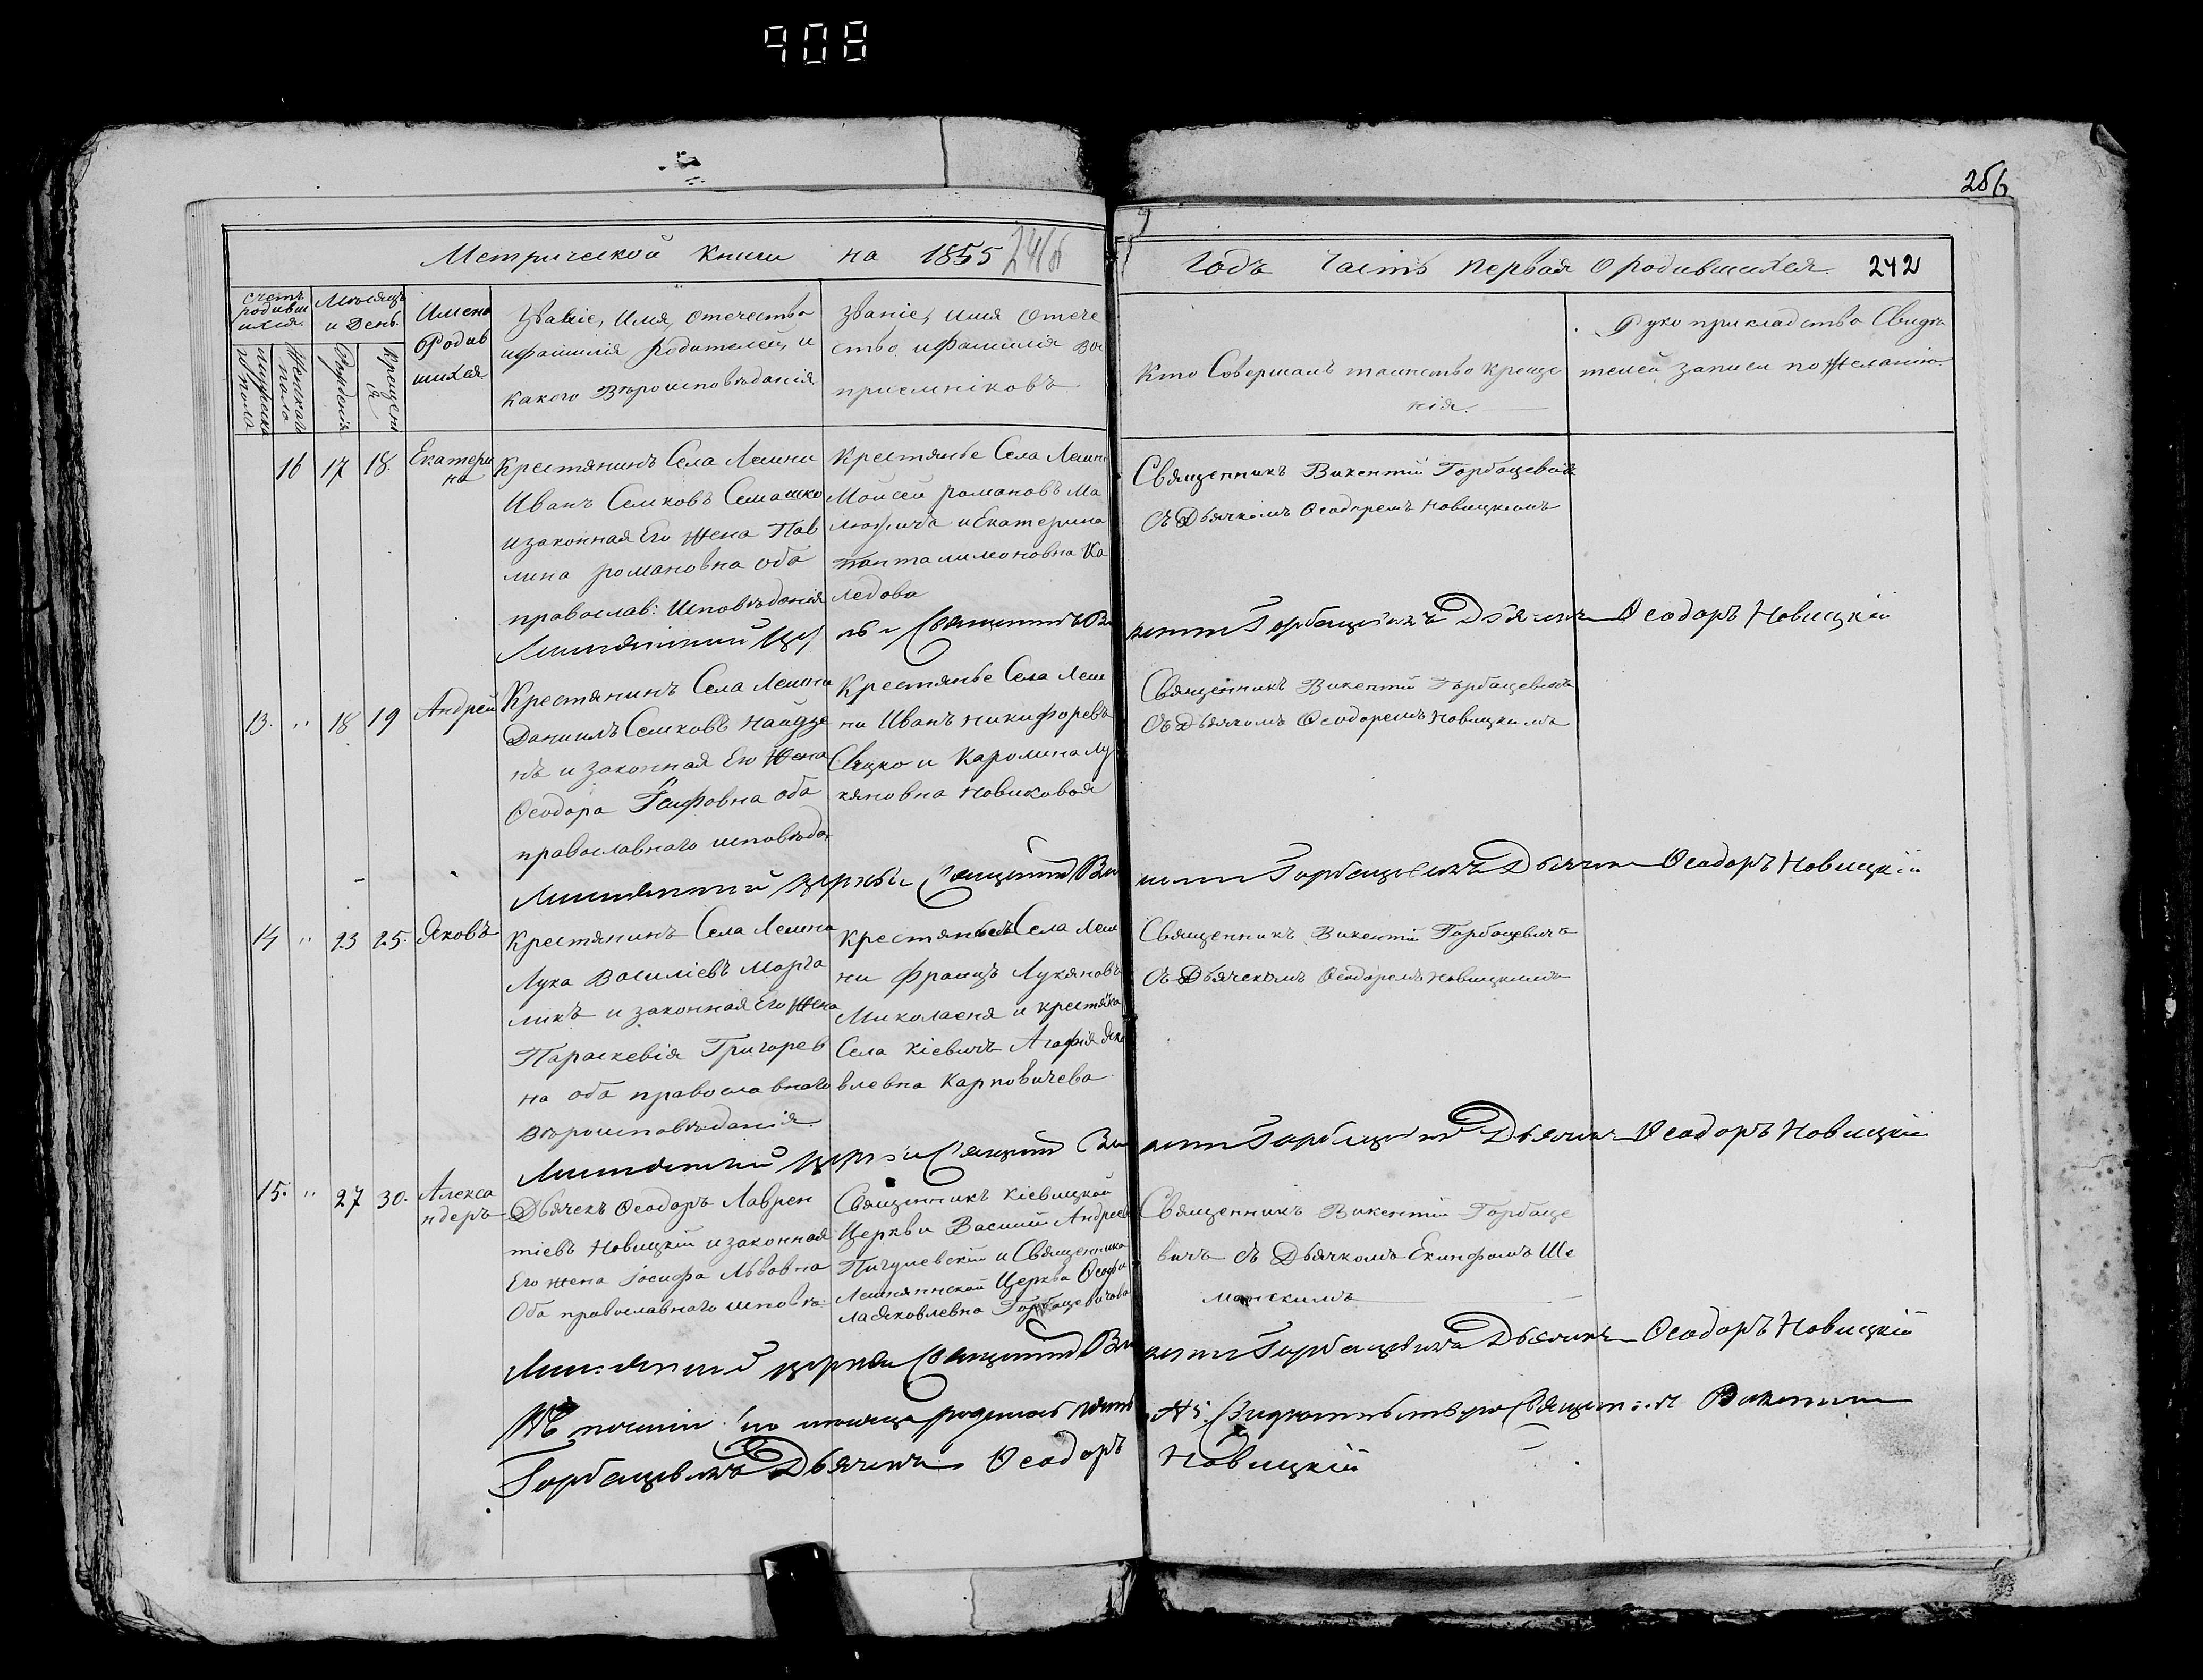 908
256
Метрической книги на 1855
246
Годъ Часть первая о родившихся 242
Счетъ родивш ихся.
Мѣсяцъ и День.
Имена Родив шихся
Званіе, Имя, Отечество
и фамилія Родителей, и
какого Вѣроисповѣданія
Званіе, имя Отече
ство и фамилія Вос
пріемниковъ
Кто Совершалъ таинство креще
нія.
Рукоприкладство Свидѣ
телей записи по Желанію
Мужеска пола
Женскаго пола
Рожденія
Крещенія
16 17 18. Екатери
на
Крестянинъ Села Лешни
Иванъ Семковъ Семашко
и законная Его Жена Пав
лина романовна оба
православ: Исповѣданія
Крестянѣ Села Лешни
Мойсей романовъ
и Екатерина
панталимоновна Ка
ледова
Священникъ Викентій Горбацевичъ
съ Дьячкомъ Ѳеодоромъ Новицкимъ
Священникъ Ви
кентій Горбацевичъ Дьячекъ Ѳеодоръ Новицкій
13. " 18 19 Андрей
Крестянинъ Села Лешни
Даниилъ Семковъ
нъ и законная Его Жена
Ѳеодора Іосифовна оба
православнаго исповѣда.
Крестянѣ Села Леш
ни Иванъ Никифоровъ
и Каролина Лу
кяновна Новиковая
Священникъ Викентій Горбацевичъ
съ Дьячкомъ Ѳеодоромъ Новицкимъ
церкви Священникъ Ви
кентій Горбацевичъ Дьячекъ Ѳеодоръ Новицкій
14 " 23 25. Яковъ
Крестянинъ Села Лешни
Лука Василіевъ Марга
ликъ и законная Его Жена
Параскевія Григорев
на оба православнаго
вѣроисповѣданія
Села Леш
ни Францъ Лукяновъ
и крестянка
Села Кіевичъ Агафія Яко
влевна Карповичева
Священникъ Викентій Горбацевичъ
съ Дьячекомъ Ѳеодоромъ Новицкимъ
церкви Священникъ Ви
кентій Горбацевичъ Дьячекъ Ѳеодоръ Новицкій
15. " 27 30. Алекса
ндеръ
Дьячекъ Ѳеодоръ Лаврен
тіевъ Новицкій и законная
Его жена Іосифа Львовна
Оба православнаго исповѣ
Священникъ Кіевицкой
Церкви Василій Андреев
и Священника
Церкви
Яковлевна Горбацевичова
Священникъ Викентій Горбаце
вичъ съ Дьячкомъ
церкви Священникъ Ви
кентій Горбацевичъ Дьячекъ Ѳеодоръ Новицкій
№ 5. Священникъ Викентій
Горбацевичъ Дьячекъ Ѳеодоръ Новицкій